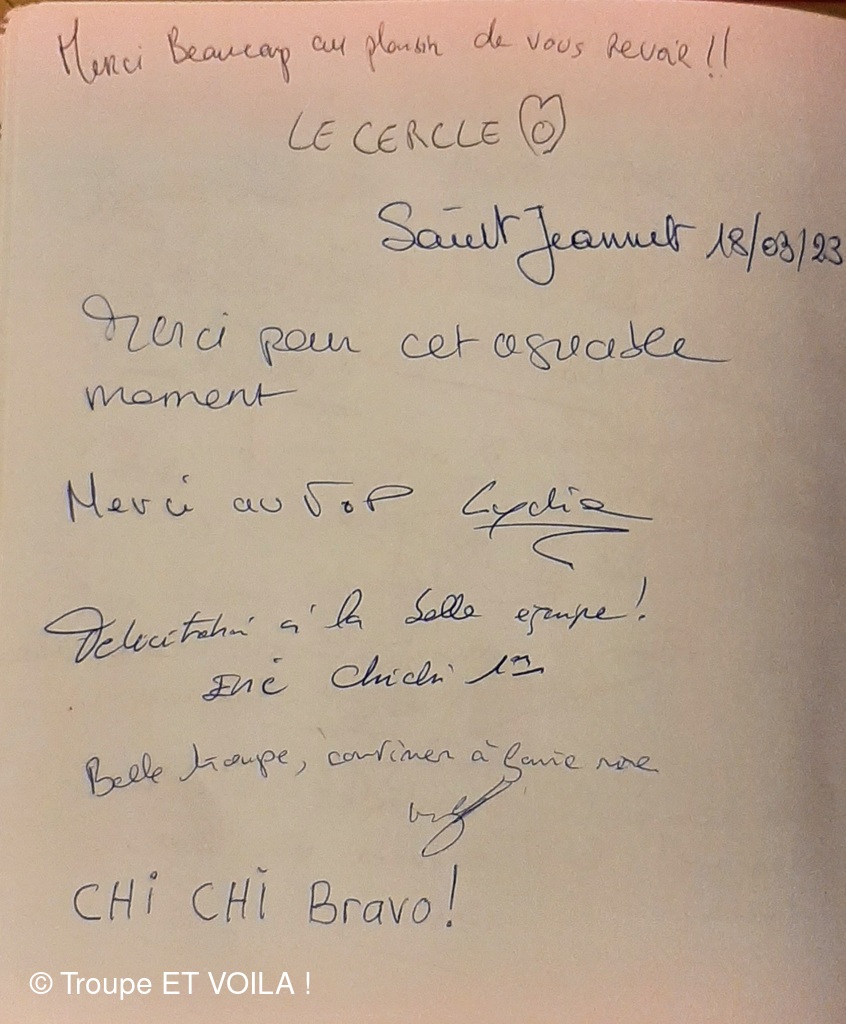 Merci Beaucoup au plaisir de vous revoir !!
LE CERCLE
Saint Jeannet 18/03/23
Merci pour cet agréable
moment
Merci au TOP Lydia
Félicitation à la belle équipe!
chichi 1er
Belle troupe, continuer à faire rire
CHi CHi Bravo!
© Troupe ET VOILA !